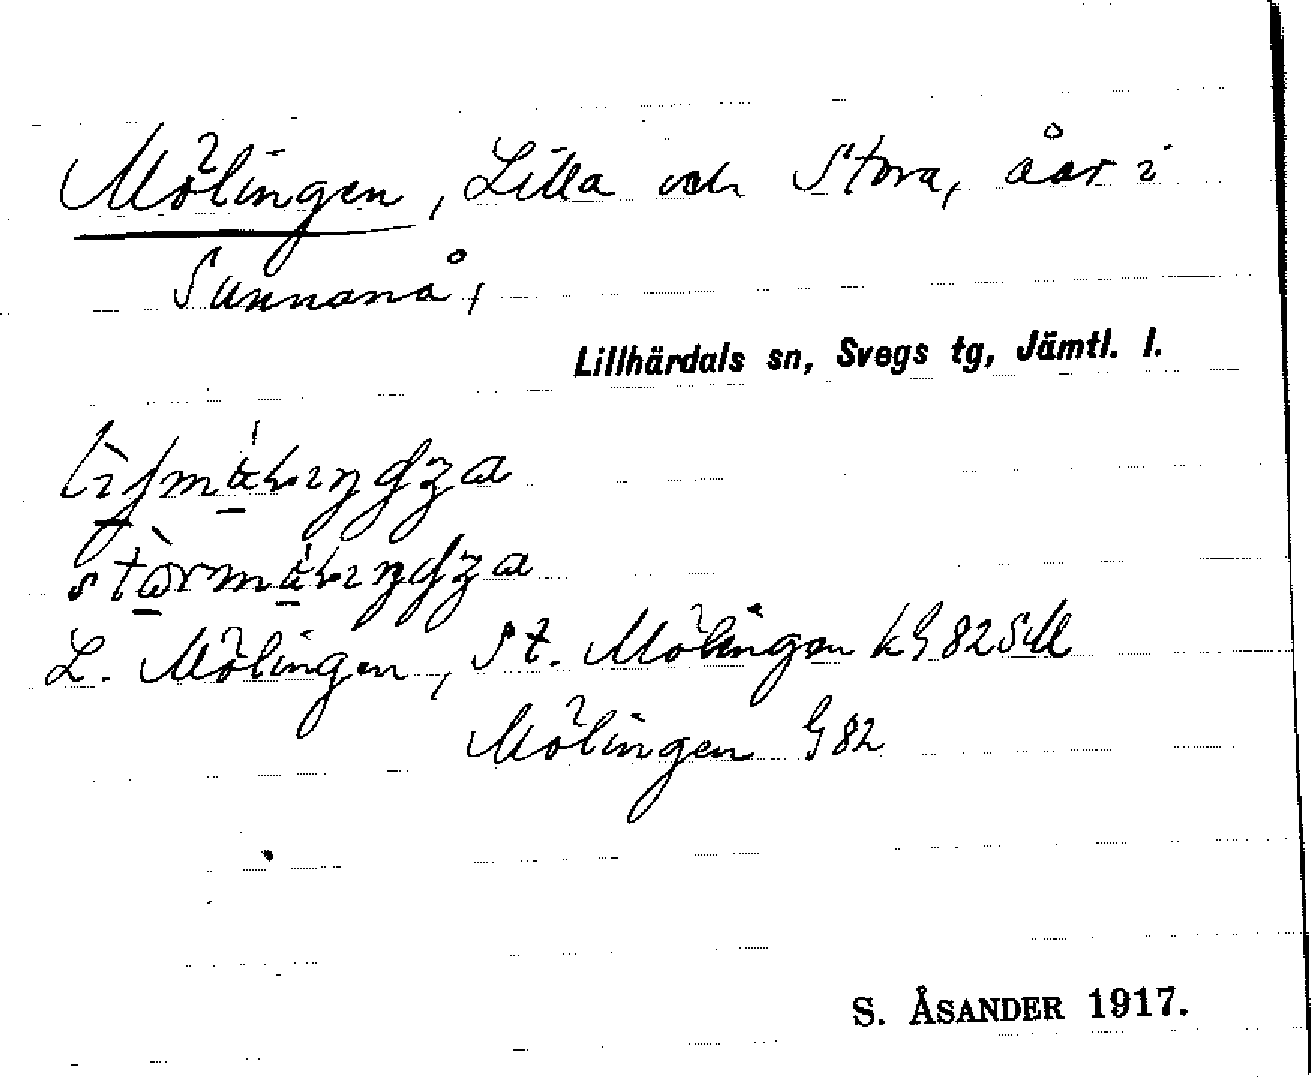 Mölingen, Lilla och Stora, åar i
Sunnanå,
Lillhärdals sn, Svegs tg, Jämtl. l.
L. Mölingen, St. Mölingen kG 82 SM
Mölingen G 82
S. ÅSANDER 1917.